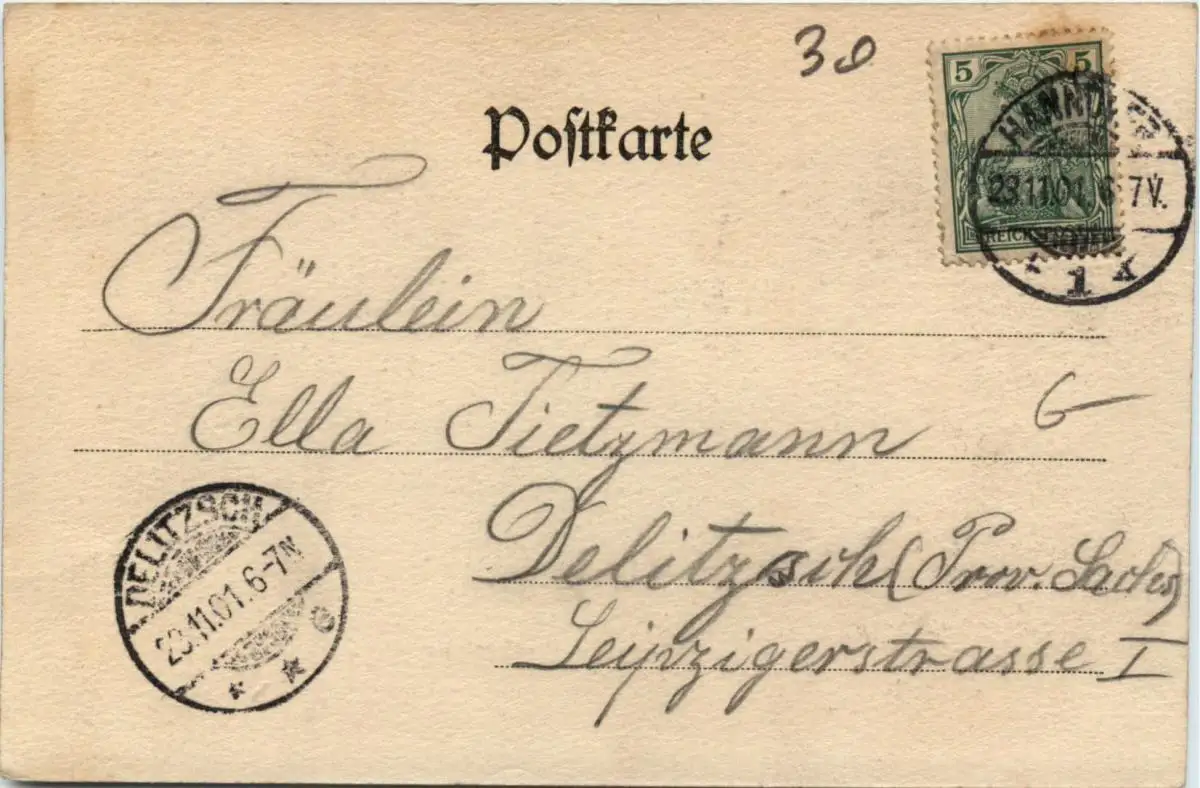 30
Postkarte
5 5
HANNOVER
23.11.01. 6-7V.
1
Fräulein
Ella Tietzmann
G
Delitzsch (Prov. Sachs)
Leipzigerstrasse I
DELITZSCH
23.11.01. 6-7N